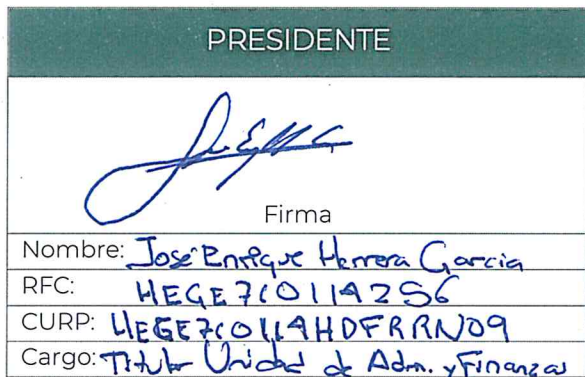 PRESIDENTE
Firma
Nombre: José Enrique Herrera Garcia
RFC: HEGE7101142S6
CURP: HEGE710114HDFRRN09
Cargo: Titular Unidad de Adm. y Finanzas